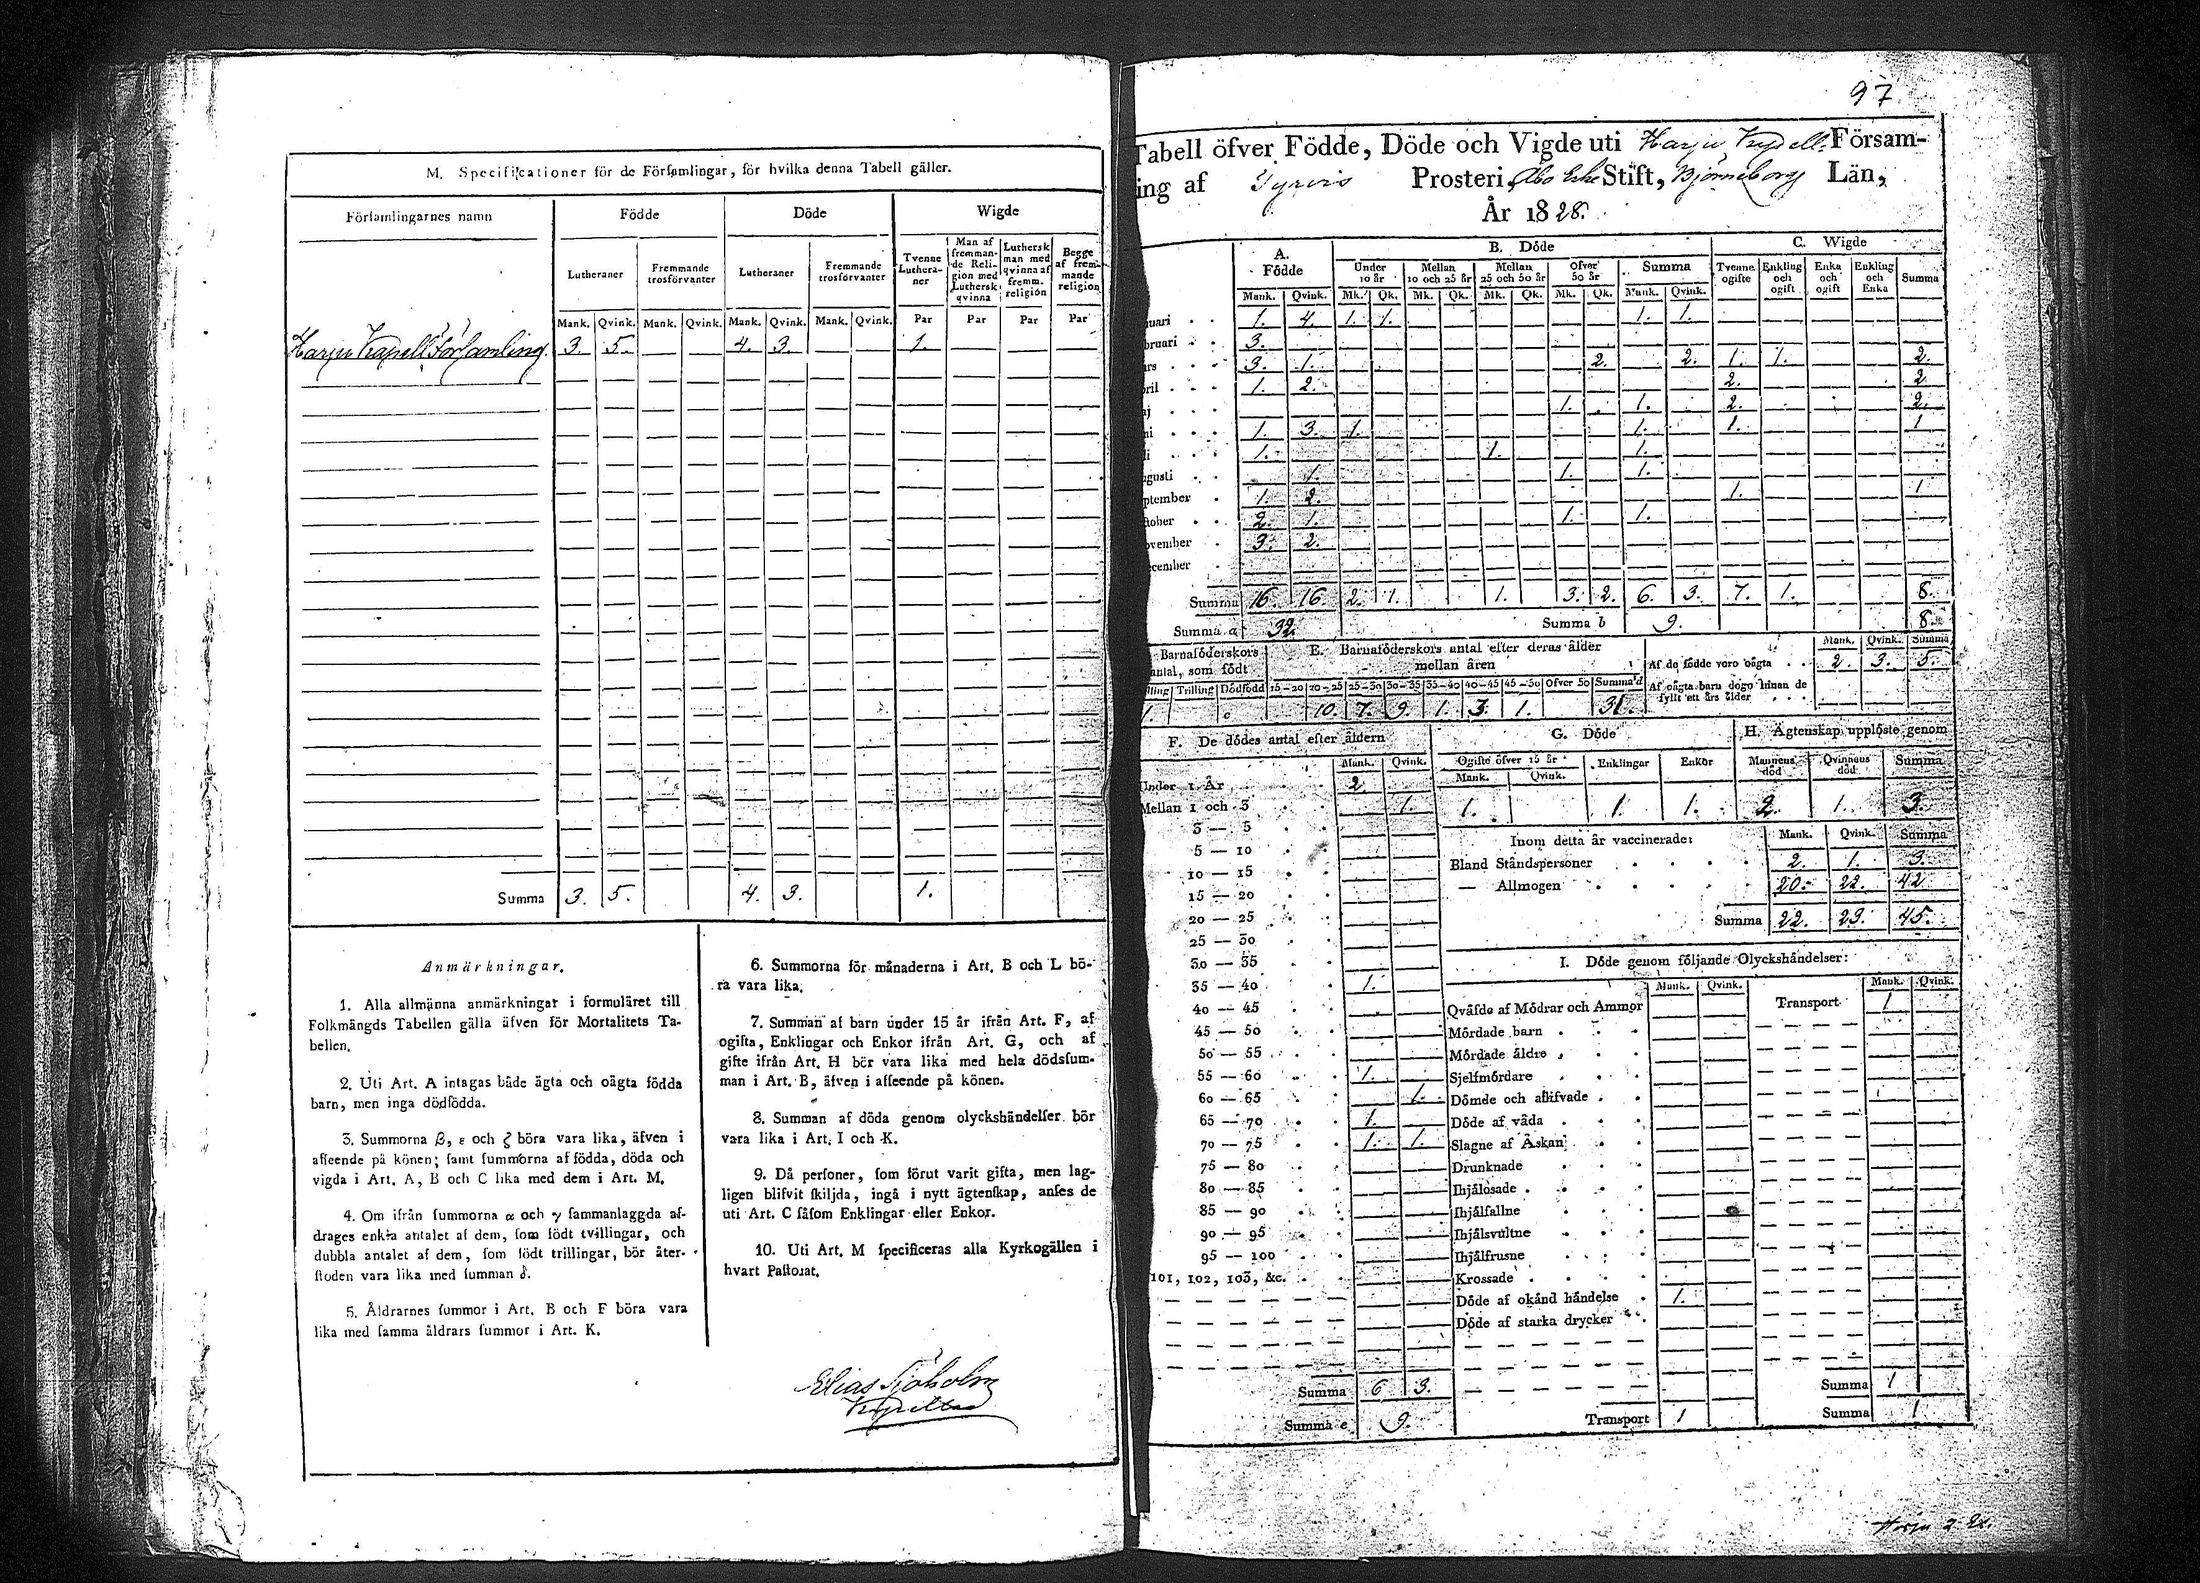 M. Specificationer för de Förſamlingar, för hvilka denna Tabell gäller.
Förſamlingarnes namn
Födde
Döde
Wigde
Lutheraner
Fremmande trosförvanter
Lutheraner
Fremmande trosförvanter
Tvenne Lutheraner
Man af fremmande Religion med Luthersk qvinna
Luthersk man med qvinna af fremm. religion
Begge af fremmande religion
Mank. Qvink. Mank. Qvink. Mank. Qvink. Mank. Qvink. Par Par Par Par
Harju Kapell Församling 3. 5. 4. 3. 1.
Summa 3. 5. 4. 3. 1.
Anmärkningar.
1. Alla allmänna anmärkningar i formuläret till
Folkmängds Tabellen gälla äfven för Mortalitets Ta-
bellen.
2. Uti Art. A intagas både ägta och oägta födda
barn, men inga dödſödda.
3. Summorna β, ε och ζ böra vara lika, äfven i
afſeende på könen; ſamt ſummorna af födda, döda och
vigda i Art. A, B och C lika med dem i Art. M.
4. Om ifrån ſummorna α och γ ſammanlaggda af-
drages enkla antalet af dem, ſom födt tvillingar, och
dubbla antalet af dem, ſom födt trillingar, bör åter-
ſtoden vara lika med ſumman δ.
5. Åldrarnes ſummor i Art. B och F böra vara
lika med ſamma åldrars ſummor i Art. K.
6. Summorna för månaderna i Art. B och L bö-
ra vara lika.
7. Summan af barn under 15 år ifrån Art. F, af
ogifta, Enklingar och Enkor ifrån Art. G, och af
gifte ifrån Art. H bör vara lika med hela dödsſum-
man i Art. B, äfven i afſeende på könen.
8. Summan af döda genom olyckshändelſer bör
vara lika i Art. I och K.
9. Då perſoner, ſom förut varit gifta, men lag-
ligen blifvit ſkiljda, ingå i nytt ägtenſkap, anſes de
uti Art. C ſåſom Enklingar eller Enkor.
10. Uti Art. M ſpecificeras alla Kyrkogällen i
hvart Paſtorat.
Elias Sjöholm
97
Tabell öfver Födde, Döde och Vigde uti Harju Kapell Församl-
ing af Tyrvis Prosteri, Åbo Erke Stift, Björneborgs Län,
År 1828.
A. Födde
B. Döde
C. Wigde
Under 10 år
Mellan 10 och 25 år
Mellan 25 och 50 år
Öfver 50 år
Summa
Tvenne ogifte
Enkling och ogift
Enka och ogift
Enkling och Enka
Summa
Mank. Qvink. Mk. Qk. Mk. Qk. Mk. Qk. Mk. Qk. Mank. Qvink.
uari 1. 4. 1. 1. 1. 1.
bruari 3.
rs 3. 1. 2. 2. 1. 1. 2.
ril 1. 2. 2. 2
j 1. 1. 2. 2.
ni 1. 3. 1. 1. 1. 1
li 1. 1. 1.
gusti 1. 1. 1.
ptember 1. 2. 1. 1
tober 2. 1. 1. 1.
ovember 3. 2.
ecember
Summa 16. 16. 2. 1. 1. 3. 2. 6. 3. 7. 1. 8.
Summa a 32. Summa b 9. 8.
Barnaföderskors antal, som födt
E. Barnaföderskors antal efter deras ålder mellan åren
Mank. Qvink. Summa
Af de födde voro oägta 2. 3. 5.
Af oägta barn dogo innan de fyllt ett års ålder
lling Trilling Dödfödd 15–20 20–25 25–30 30–35 35–40 40–45 45–50 Öfver 50 Summa d
1. 10. 7. 9. 1. 3. 1. 31.
F. De dödes antal efter åldern
Mank. Qvink.
Under 1 År 2
Mellan 1 och 3 1.
3 — 5
5 — 10
10 — 15
15 — 20
20 — 25
25 — 30
30 — 35
35 — 40 1.
40 — 45
45 — 50
50 — 55
55 — 60 1.
60 — 65 1.
65 — 70 1.
70 — 75 1. 1.
75 — 80
80 — 85
85 — 90
90 — 95
95 — 100
101, 102, 103, &c.
Summa 6 3.
Summa e 9.
G. Döde
Ogifte öfver 15 år Enklingar Enkor
Mank. Qvink.
1. 1. 1.
H. Ägtenskap upplöste genom
Mannens död Qvinnans död Summa
2. 1. 3.
Inom detta år vaccinerade: Mank. Qvink. Summa
Bland Ståndspersoner 2. 1. 3.
— Allmogen 20. 22. 42
Summa 22. 23. 45.
I. Döde genom följande Olyckshändelser:
Mank. Qvink. Mank. Qvink.
Qväfde af Mödrar och Ammor
Transport 1
Mördade barn
Mördade äldre
Sjelfmördare
Dömde och aflifvade
Döde af våda
Slagne af Åskan
Drunknade
Ihjälosade
Ihjälfallne
Ihjälsvultne
Ihjälfrusne
Krossade
Döde af okänd händelse 1.
Döde af starka drycker
Summa 1
Transport 1 Summa 1